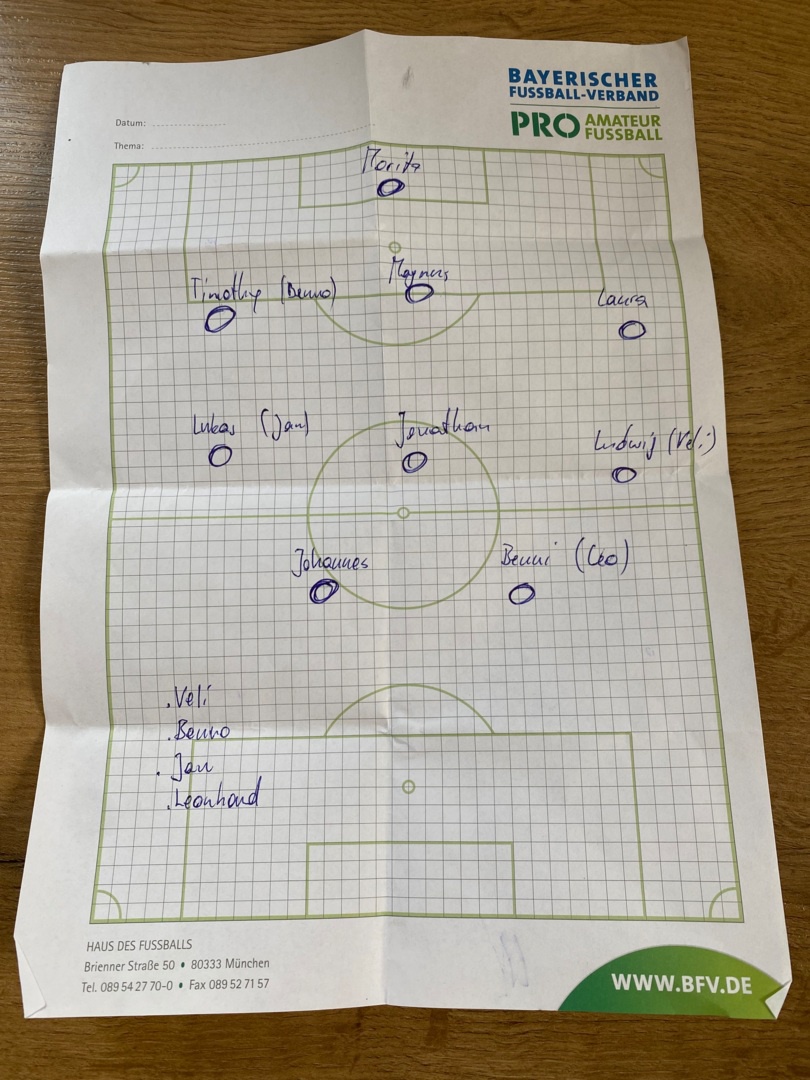 BAYERISCHER
FUSSBALL-VERBAND
PRO AMATEUR
FUSSBALL
Datum:
Thema:
Moritz
Timothy (Benno)
Magnus
Laura
Lukas (Jan)
Jonathan
Ludwig (Veli)
Johannes
Benni (Leo)
.Veli
.Benno
. Jan
.Leonhard
HAUS DES FUSSBALLS
Brienner Straße 50 • 80333 München
Tel. 089 54 27 70-0 • Fax 089 52 71 57
WWW.BFV.DE